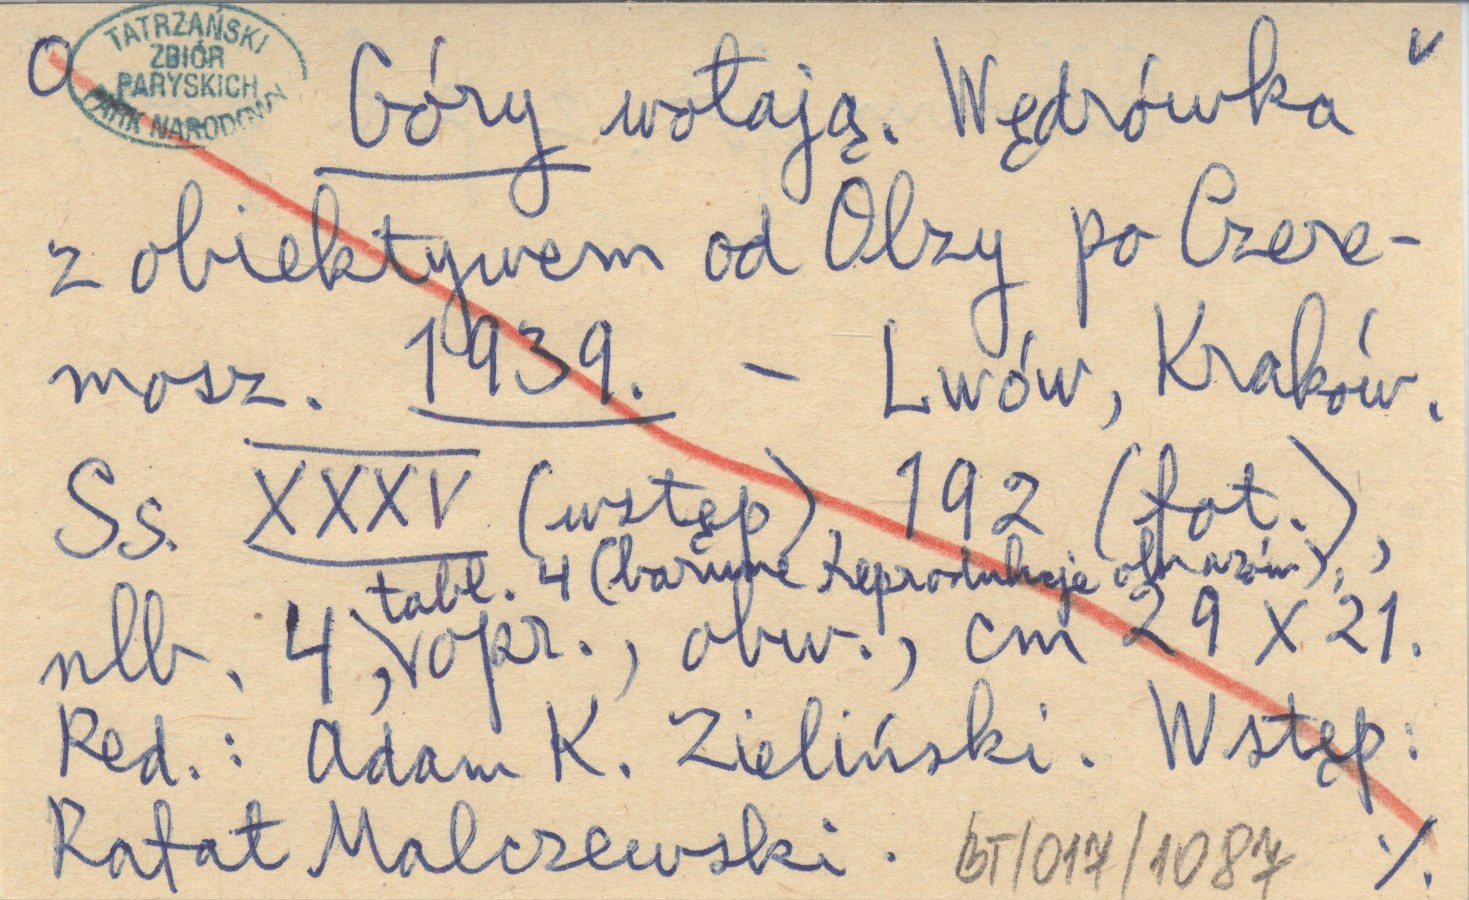 O
TATRZAŃSKI
ZBIÓR
PARYSKICH
PARK NARODOWY
v
Góry wołają. Wędrówka
z obiektywem od Olzy po Czere-
mosz. 1939. - Lwów, Kraków.
Ss. XXXV (wstęp), 192 (fot.),
tabl. 4 (barwne reprodukcje obrazów),
nlb. 4, opr., obw., cm 29 x 21.
Red.: Adam K. Zieliński. Wstęp:
Rafał Malczewski.
BT/017/1087
./.